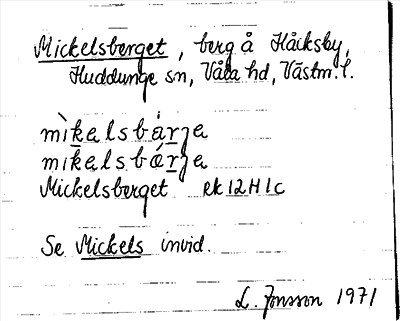 Mickelsberget, berg å Håcksby,
Huddunge sn, Våla hd, Västm. l.
mìkelsbárje
mikelsbǽrje
Mickelsberget ek 12H1c
Se Mickels invid.
L. Jonsson 1971